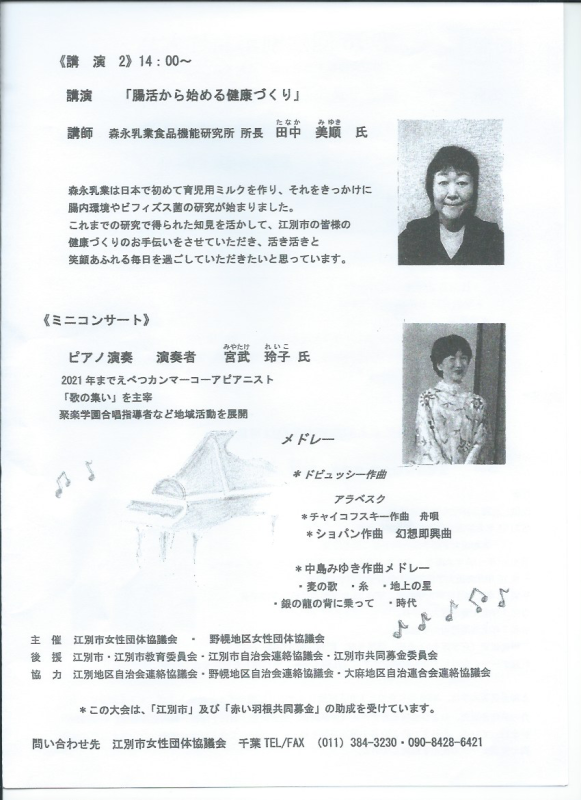 《講　演　2》14：00～
講演　「腸活から始める健康づくり」
たなか　みゆき
講師　森永乳業食品機能研究所 所長　田中　美順　氏
森永乳業は日本で初めて育児用ミルクを作り、それをきっかけに
腸内環境やビフィズス菌の研究が始まりました。
これまでの研究で得られた知見を活かして、江別市の皆様の
健康づくりのお手伝いをさせていただき、活き活きと
笑顔あふれる毎日を過ごしていただきたいと思っています。
《ミニコンサート》
みやたけ　れいこ
ピアノ演奏　演奏者　宮武　玲子 氏
2021年までえべつカンマーコーアピアニスト
「歌の集い」を主宰
聚楽学園合唱指導者など地域活動を展開
メドレー
＊ドビュッシー作曲
アラベスク
＊チャイコフスキー作曲　舟唄
＊ショパン作曲　幻想即興曲
＊中島みゆき作曲メドレー
・麦の歌　・糸　・地上の星
・銀の龍の背に乗って　・時代
主　催　江別市女性団体協議会　・　野幌地区女性団体協議会
後　援　江別市・江別市教育委員会・江別市自治会連絡協議会・江別市共同募金委員会
協　力　江別地区自治会連絡協議会・野幌地区自治会連絡協議会・大麻地区自治連合会連絡協議会
＊この大会は、「江別市」及び「赤い羽根共同募金」の助成を受けています。
問い合わせ先　江別市女性団体協議会　千葉 TEL/FAX　（011）384-3230・090-8428-6421